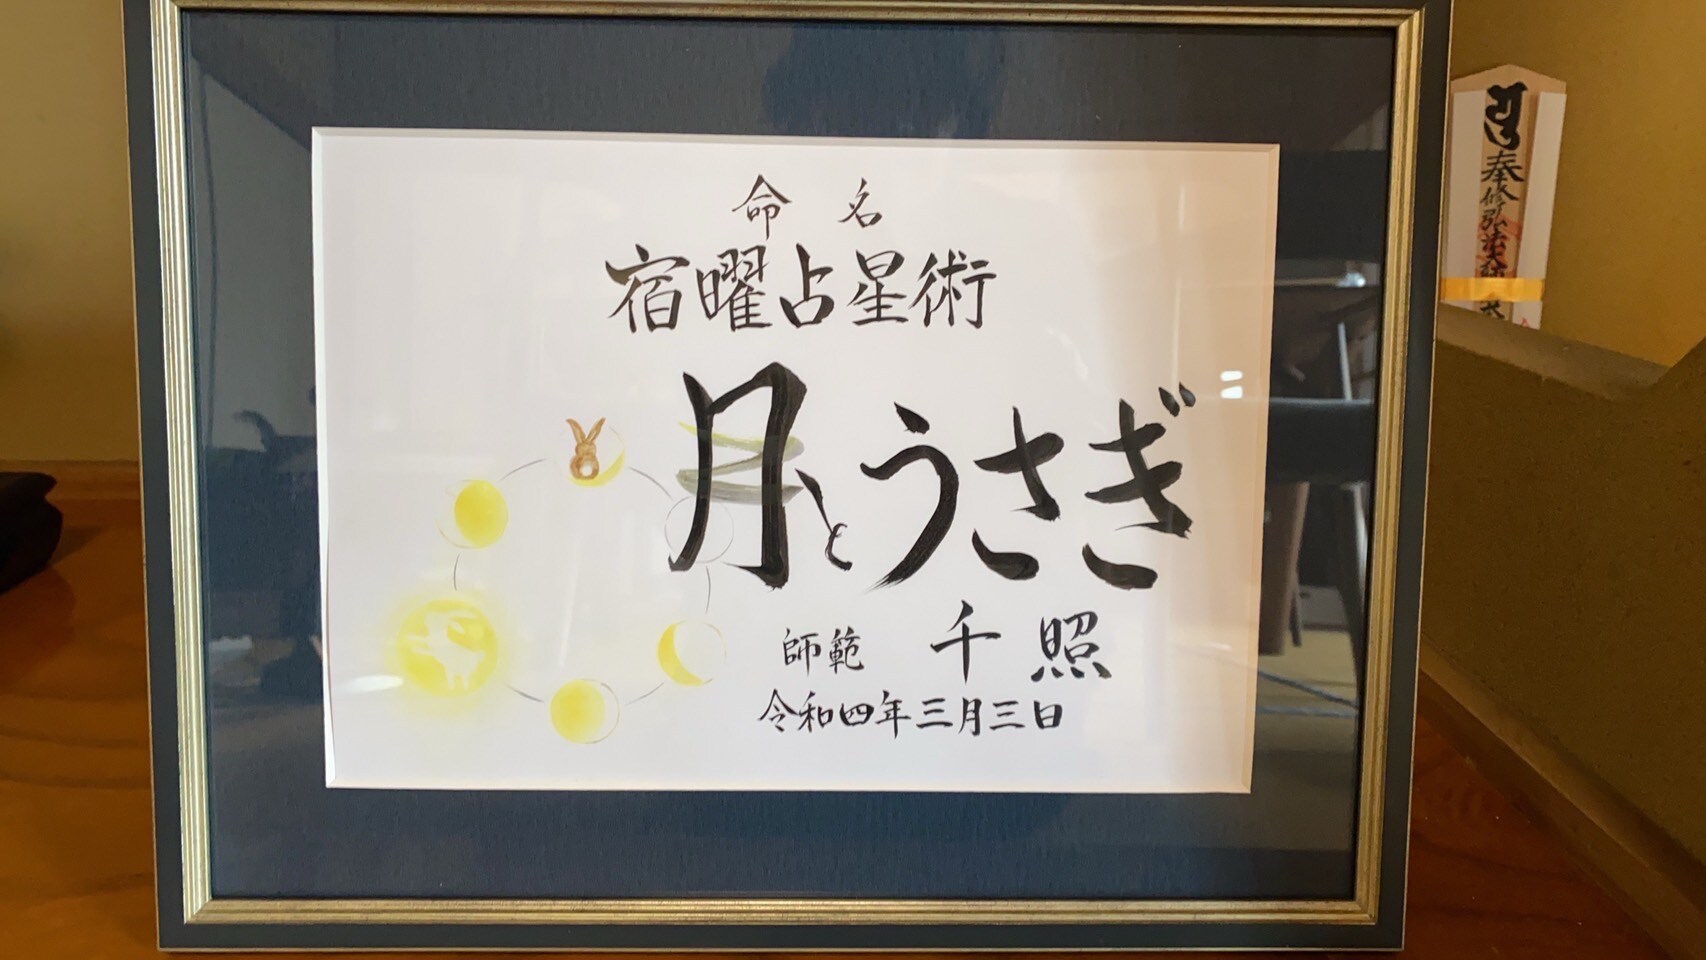 命名
宿曜占星術
月とうさぎ
師範 千照
令和四年三月三日
奉修弘法大